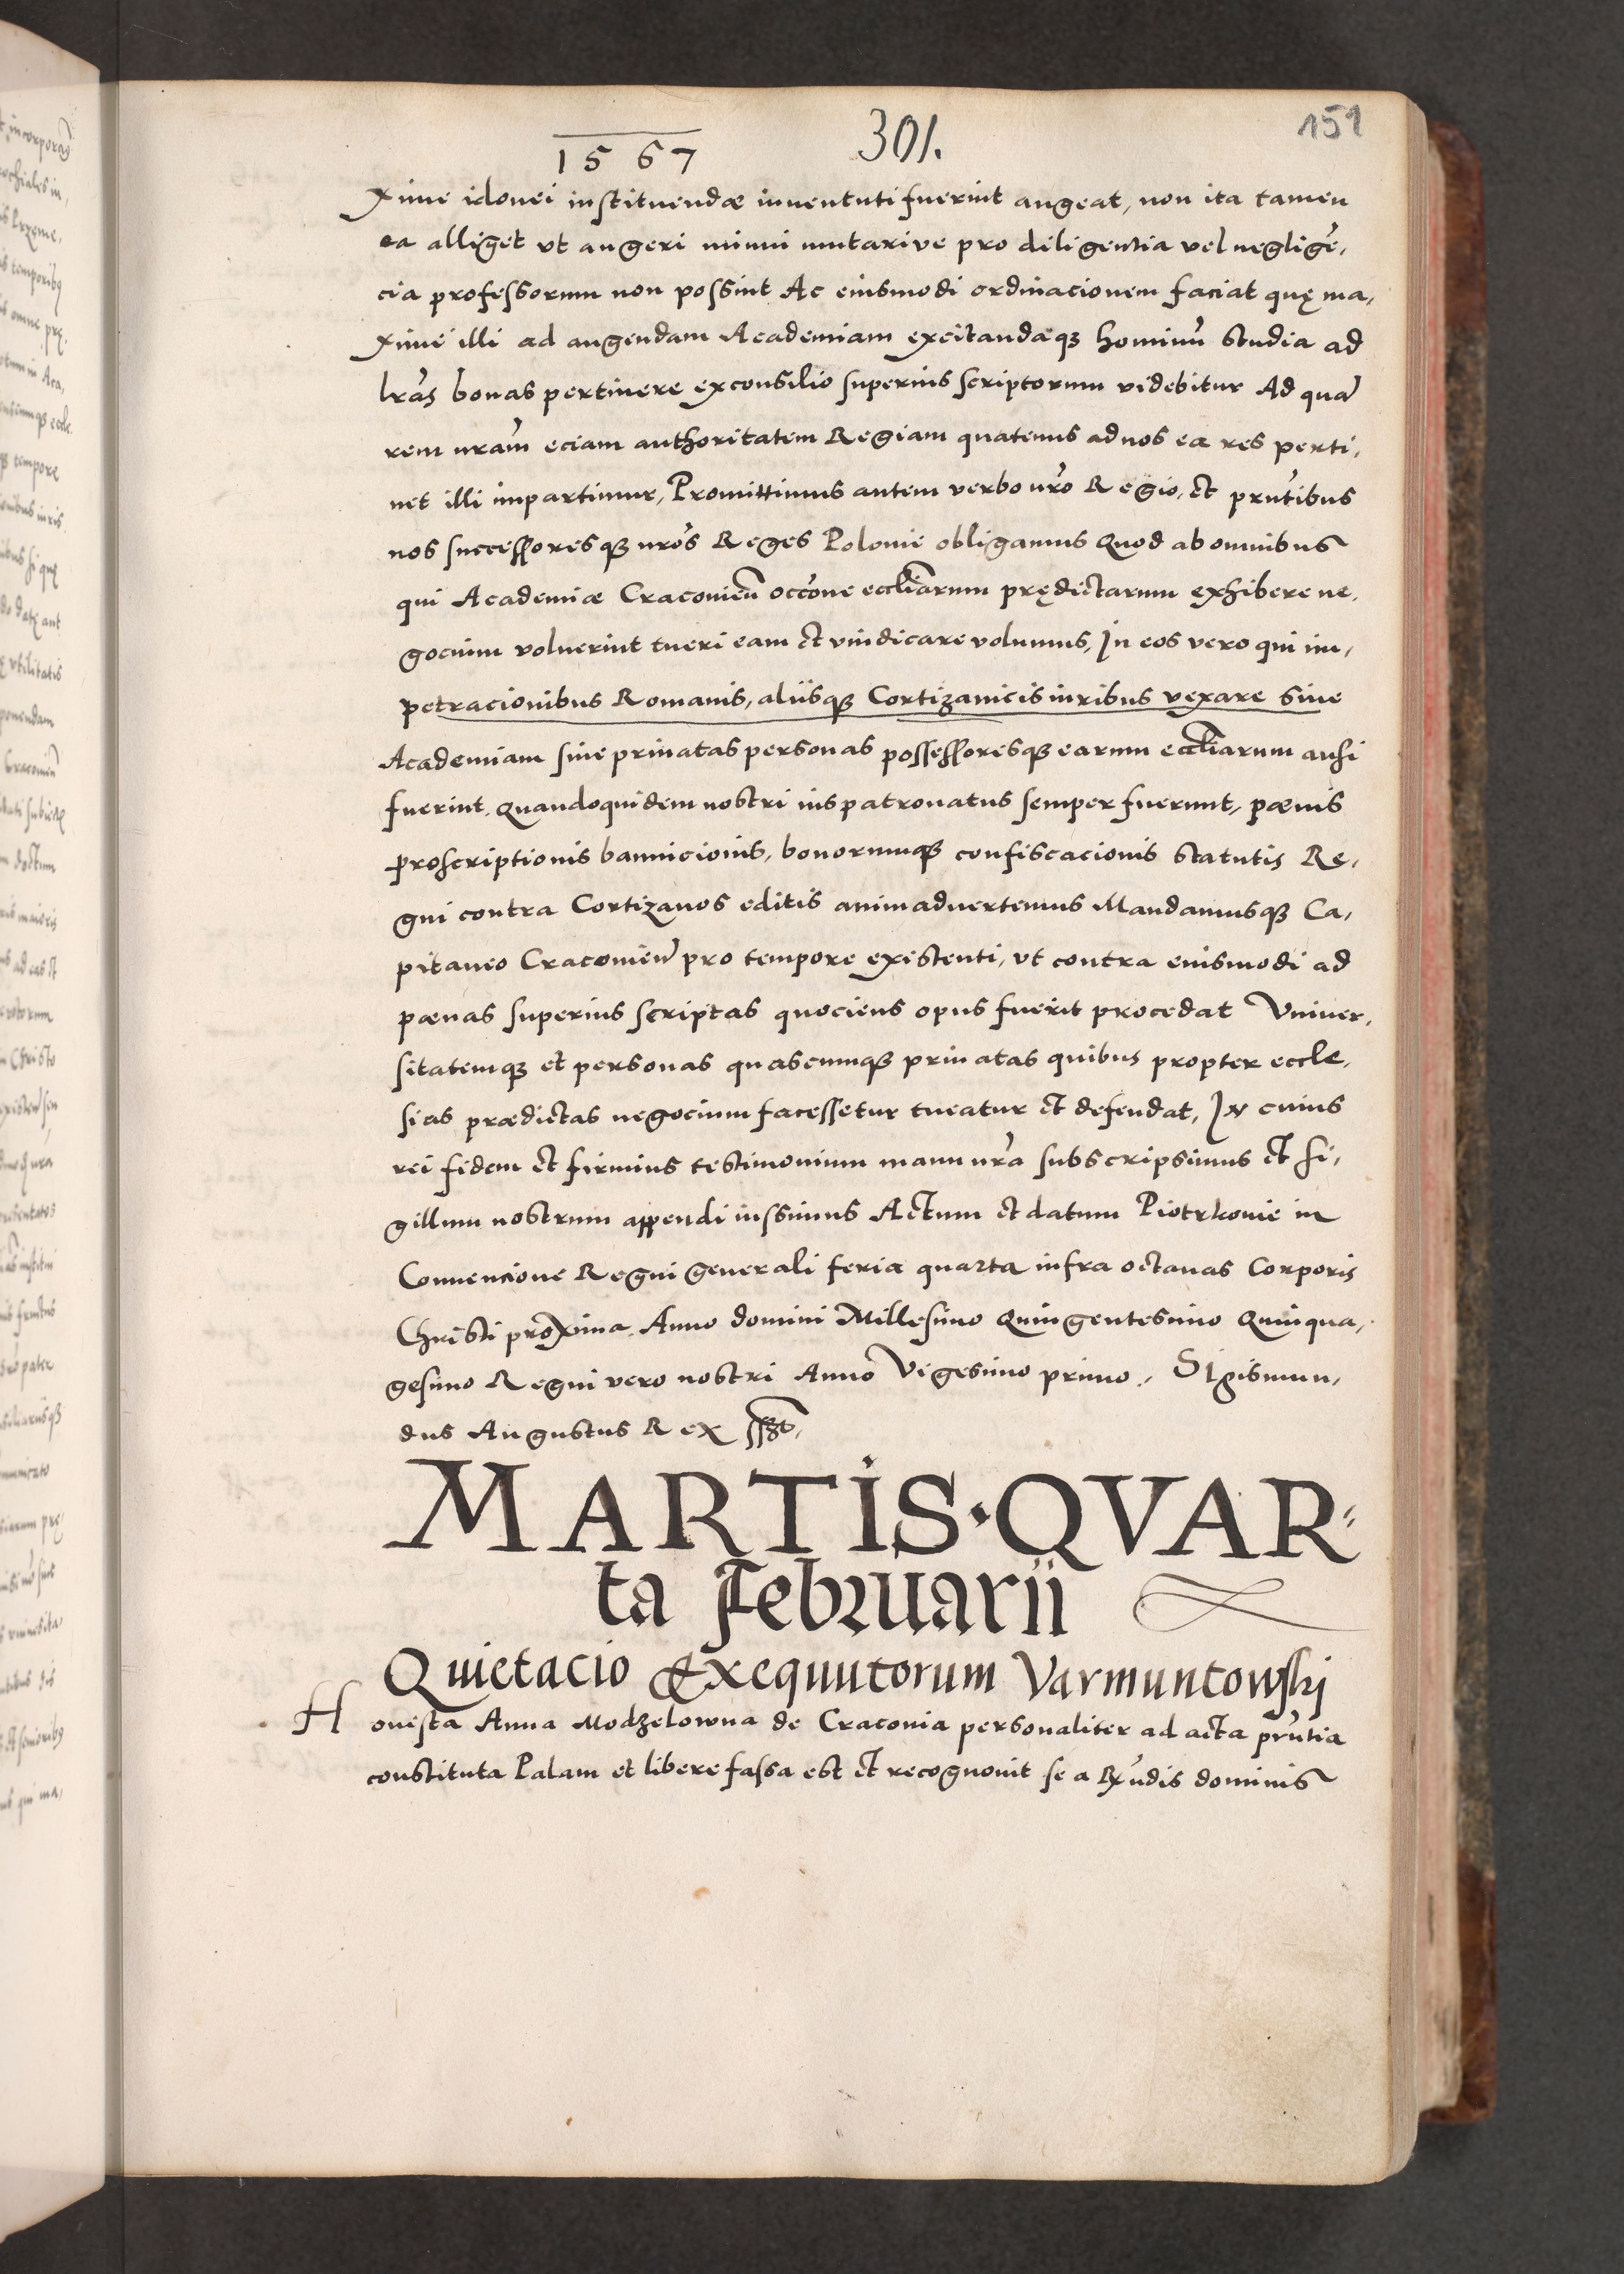 1567 301. 151
xime idonei instituendæ iuuentuti fuerint augeat, non ita tamen
ea alliget vt augeri minui mutarive pro diligentia vel negligẽ,
cia professorum non possint Ac eiusmodi ordinacionem faciat quę ma,
xime illi ad augendam Academiam excitandaqȝ hominũ studia ad
lrãs bonas pertinere ex consilio superius scriptorum videbitur Ad quã
rem nrãm eciam authoritatem Regiam quatenus ad nos ea res perti,
net illi impartimur, Promittimus autem verbo nrõ Regio, et prñtibus
nos successoresqȝ nrõs Reges Polonie obligamus Quod ab omnibus
qui Academiæ Cracouień occõne eccłiarum prędictarum exhibere ne,
gocium voluerint tueri eam et vindicare volumus, In eos vero qui im,
petracionibus Romanis, aliisqȝ Cortizanicis iuribus vexare siue
Academiam siue priuatas personas possessoresqȝ earum eccłiarum ausi
fuerint, quandoquidem nostri iuspatronatus semper fuerunt, pænis
proscriptionis bannicionis, bonorumqȝ confiscacionis statutis Re,
gni contra Cortizanos editis animaduertemus Mandamusqȝ Ca,
pitaneo Cracouień pro tempore existenti, vt contra eiusmodi ad
pænas superius scriptas quociens opus fuerit procedat Vniuer,
sitatemqȝ et personas quascumqȝ priuatas quibus propter eccle,
sias prædictas negocium facessetur tueatur et defendat, In cuius
rei fidem et firmius testimonium manu nrã subscripsimus et si,
gillum nostrum appendi iussimus Actum et datum Piotrkouie in
Conuencione Regni generali feria quarta infra octauas Corporis
Christi proxima Anno domini Millesimo Quingentesimo Quinqua,
gesimo Regni vero nostri Anno Vigesimo primo, Sigismun,
dus Augustus Rex sszt,
MARTIS·QVAR
ta Februarii
Quietacio Exequutorum Varmuntowski
Honesta Anna Modzelowna de Cracouia personaliter ad acta prñtia
constituta Palam et libere fassa est et recognouit se a Rñdis dominis